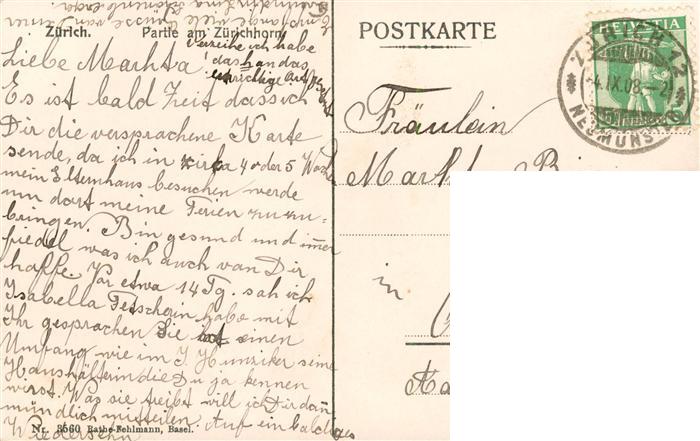 POSTKARTE
HELVETIA
ZÜRICH 12
-4.IX.08.-2
NEUMÜNS
Zürich. Partie am Zürichhorn
Verzeihe ich habe
das h an das
unrichtige Ort gesetzt
Liebe Marhta
Es ist bald Zeit dass ich
Dir die versprachene Karte
sende, da ich in zirka 4 oder 5 Woch
mein Elternhaus besuchen werde
um dort meine Ferien zu zu-
bringen. Bin gesund und immer
fiedel was ich auch van Dir
haffe. Var etwa 14 Tg. sah ich
Isabella habe mit
Ihr gesprachen Sie hat einen
Umfang wie im J. seine
Haushälterin die Du ja kennen
wirst. Was sie treibt will ich Dir dann
mündlich mitteilen. Auf ein baldiges
Wiedersehn
Fräulein
in
Nr. 3560 Rathe-Fehlmann, Basel.